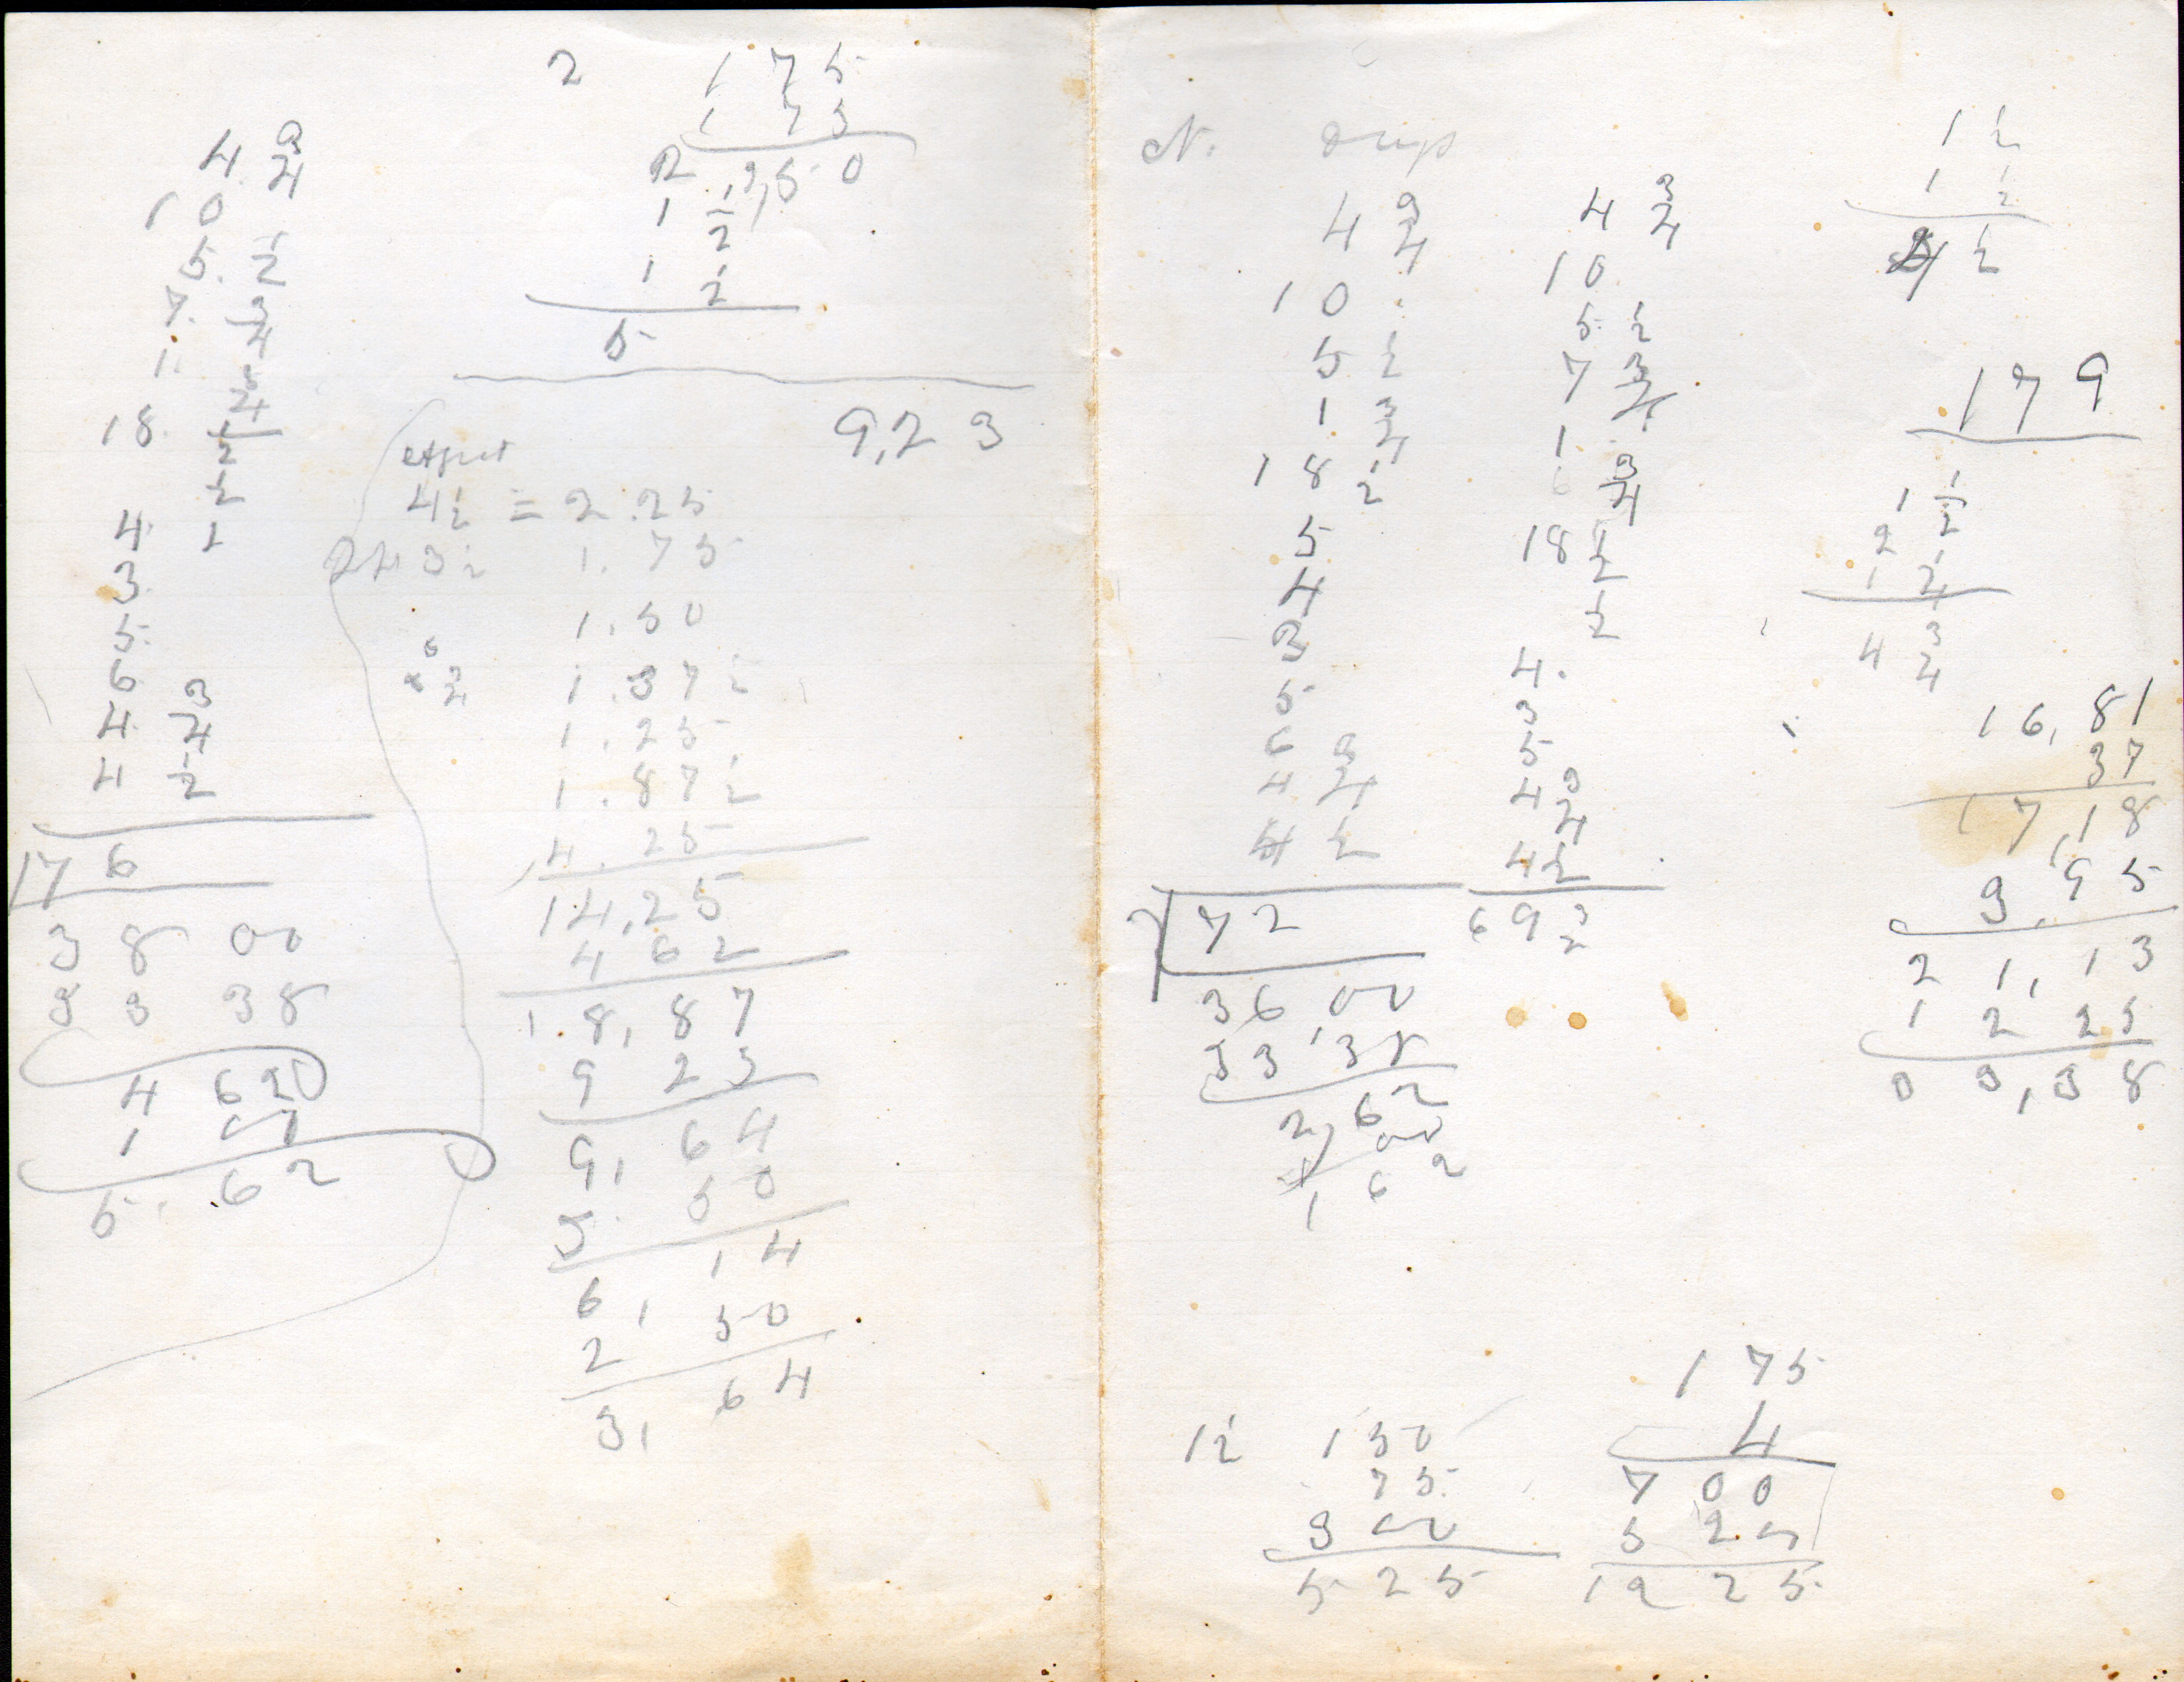 4 3/4
10
5 1/2
7 3/4
1 3/4
18 1/2
1/2
4 1
3
5
6
4 3/4
4 1/2
176
38 00
33 38
4 62
1 00
5.62
2 175
175
2 3,50
1 1/2
1 1/2
5
9,23
4 1/2 = 2.25
3 1/2 1.75
1.50
1.37 1/2
1.25
1.87 1/2
4.25
14,25
4 62
18,87
9 23
9,64
3 50
6,14
2 50
3,64
N.
4 3/4
10
5 1/2
1 3/4
18 1/2
5
4
3
5
6
4 3/4
4 1/2
72
36,00
33,38
2,62
1 00
1 62
4 3/4
10
5 1/2
7 3/4
1
6 3/4
18 1/2
1/2
4.
3
5
4 3/4
4 1/2
69 3/2
1 1/2
1 1/2
4 1/2
179
1 1/2
2
1 1/4
4 3/4
16,81
37
17,18
3,95
21,13
12 25
03,38
1 1/2 150
75
300
525
175
4
700
525
1225